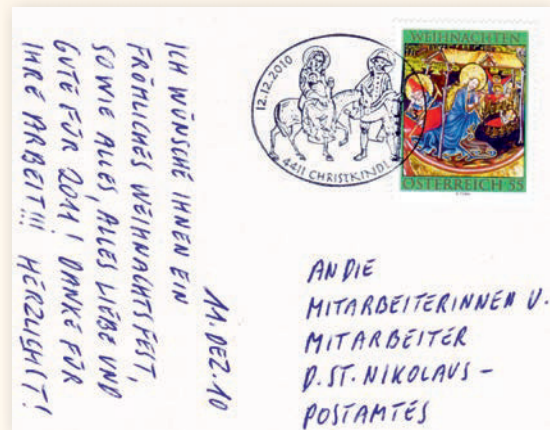 ICH WÜNSCHE IHNEN EIN
FRÖHLICHES WEIHNACHTSFEST,
SOWIE ALLES, ALLES LIEBE UND
GUTE FÜR 2011! DANKE FÜR
IHRE ARBEIT!!! HERZLICHST!
11. DEZ. 10
12.12.2010
4411 CHRISTKINDL
WEIHNACHTEN
ÖSTERREICH 55
AN DIE
MITARBEITERINNEN U.
MITARBEITER
D. ST. NIKOLAUS-
POSTAMTES